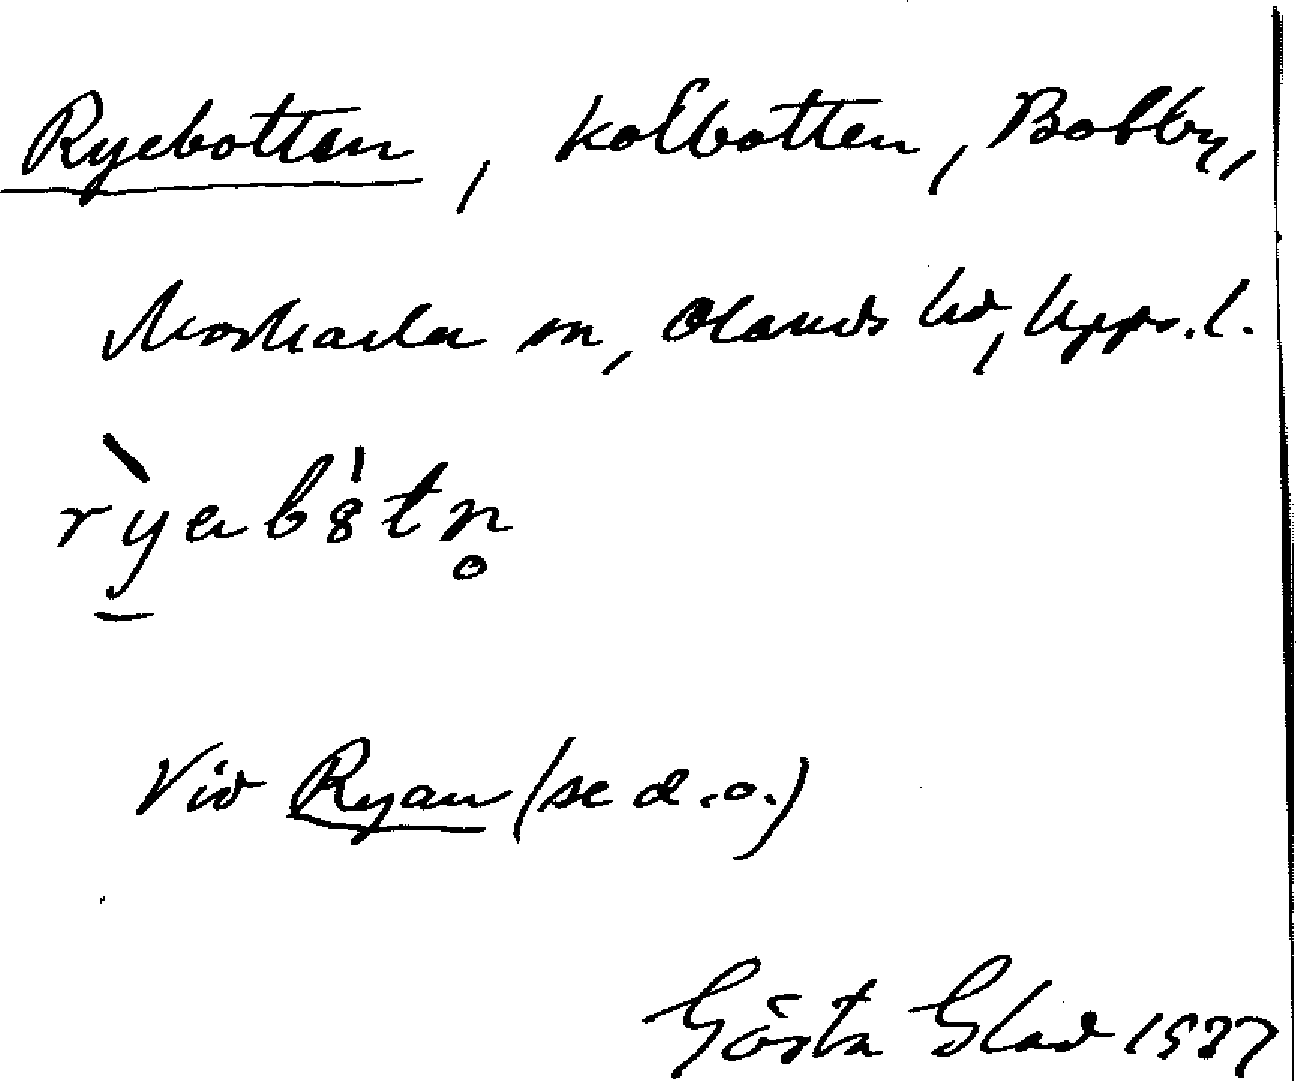 Ryebotten, kolbotten, Bobby,
Morkarla sn, Olands hd, Upps. l.
Vid Ryan (se d. o.)
Gösta Glad 1937